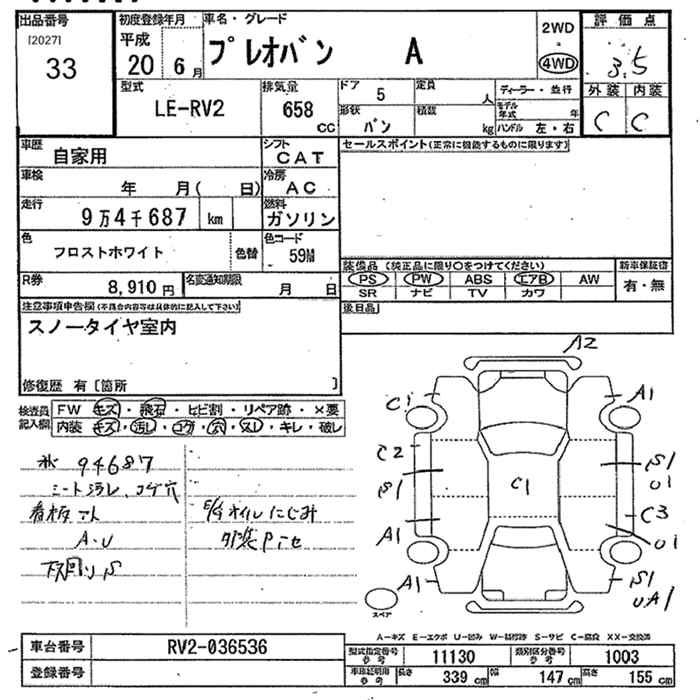 出品番号
[2027]
33
初度登録年月
平成
20 6月
車名・グレード
プレオバン A
2WD
4WD
評価点
3.5
外装 内装
C C
型式
LE-RV2
排気量
658 CC
ドア 5
形状 バン
定員 人
積載 kg
ディーラー・並行
モデル年式 年
ハンドル 左・右
車歴
自家用
シフト
CAT
車検
年 月( 日)
冷房
AC
走行
9万4千687 km
燃料
ガソリン
色
フロストホワイト
色替
色コード
59M
R券
8,910円
名変通知期限
月 日
セールスポイント(正常に機能するものに限ります)
装備品 (純正品に限り○をつけてください)
PS PW ABS エアB AW
SR ナビ TV カワ
新車保証書
有・無
後日品
注意事項申告欄(不具合内容等は具体的に記入して下さい)
スノータイヤ室内
修復歴 有〔箇所 〕
検査員記入欄
FW キズ・飛石・ヒビ割・リペア跡・×要
内装 キズ・汚レ・コゲ・穴・スレ・キレ・破レ
94687
シート汚レ、コゲ穴
A・U
下回りS
E/Gオイルにじみ
A2
C1
A1
C2
S1
S1
U1
C1
C3
A1
U1
A1
S1
UA1
スペア
A―キズ E―エクボ U―凹み W―補修跡 S―サビ C―腐食 XX―交換済
車台番号
RV2-036536
登録番号
型式指定番号参考
11130
類別区分番号参考
1003
車検証明用参考
長さ 339cm
幅 147cm
高さ 155cm